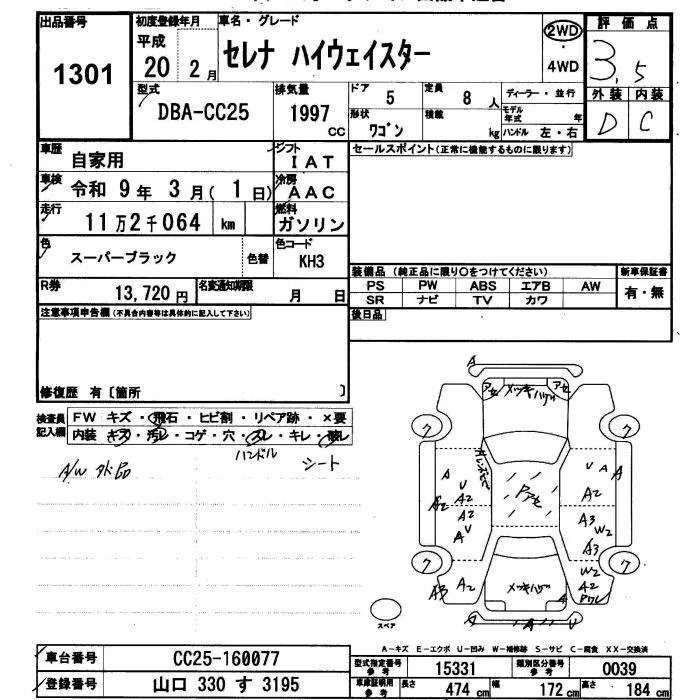 出品番号
1301
初度登録年月
平成
20 2 月
車名・グレード
セレナ ハイウェイスター
2WD
・
4WD
評価点
3.5
外装 内装
D C
型式
DBA-CC25
排気量
1997 CC
ドア
5
定員
8 人
形状
ワゴン
積載
kg
ディーラー・並行
モデル年式
年
ハンドル 左・右
車歴
自家用
シフト
IAT
車検
令和 9 年 3 月( 1 日)
冷房
AAC
走行
11万2千064 km
燃料
ガソリン
色
スーパーブラック
色替
色コード
KH3
R券
13,720 円
名変通知期限
月 日
注意事項申告欄(不具合内容等は具体的に記入して下さい)
修復歴 有〔箇所 〕
セールスポイント(正常に機能するものに限ります)
装備品(純正品に限り○をつけてください)
PS PW ABS エアB AW
SR ナビ TV カワ
新車保証書
有・無
後日品
検査員
記入欄
FW キズ・飛石・ヒビ割・リペア跡・×要
内装 キズ・汚レ・コゲ・穴・スレ・キレ・破レ
ハンドル
シート
A/W 外品
A
アセ メッキハゲ アセ
ク ク
A
U
A2
A2
A2
U
A
U A A
A2
A3
W2
A3
ク ク
A3 A2
メッキハゲ
W2
A2
A
A A U
スペア
A-キズ E-エクボ U-凹み W-補修跡 S-サビ C-腐食 XX-交換済
車台番号
CC25-160077
登録番号
山口 330 す 3195
型式指定番号
参考
15331
類別区分番号
参考
0039
車庫証明用
参考
長さ
474 cm
幅
172 cm
高さ
184 cm